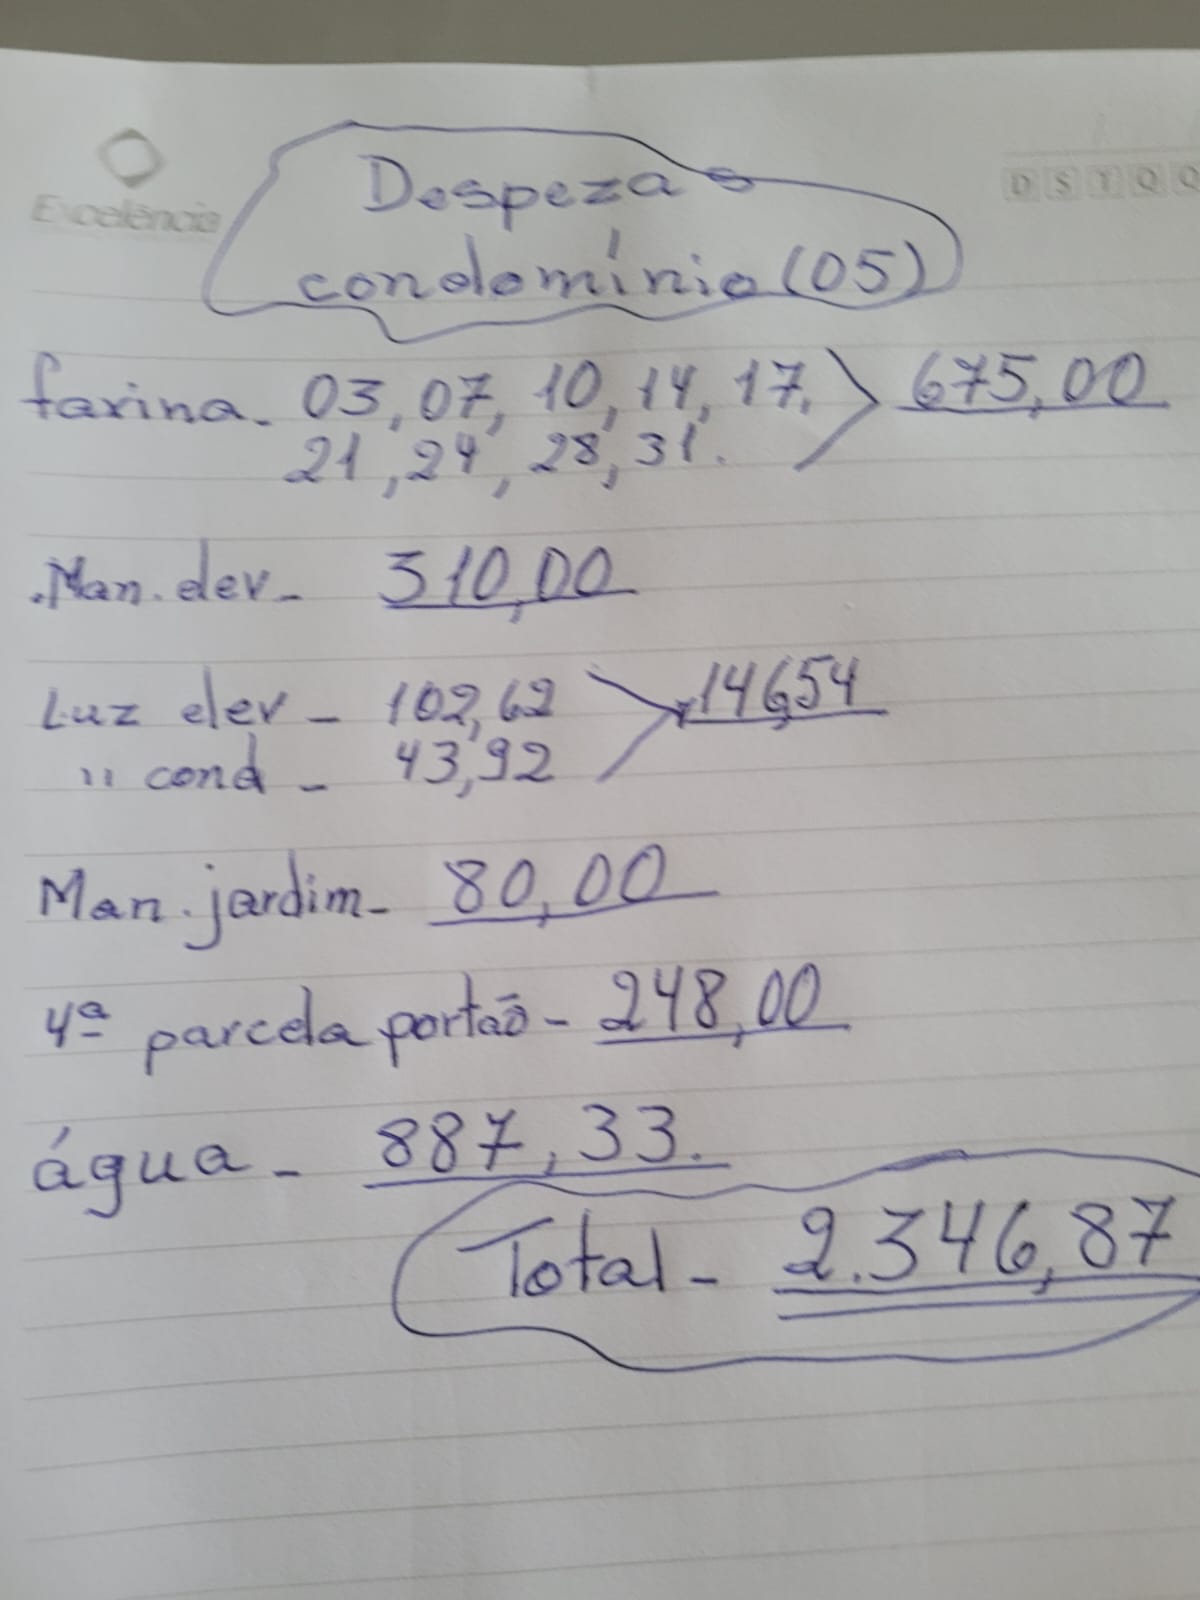 Excelência
D S T Q Q
Despezas
condomínio (05)
faxina - 03, 07, 10, 14, 17. 675,00
21, 24, 28, 31.
Man. elev - 310,00
Luz elev - 102,62 146,54
" cond - 43,92
Man. jardim - 80,00
4ª parcela portão - 248,00
água - 887,33.
Total - 2.346,87